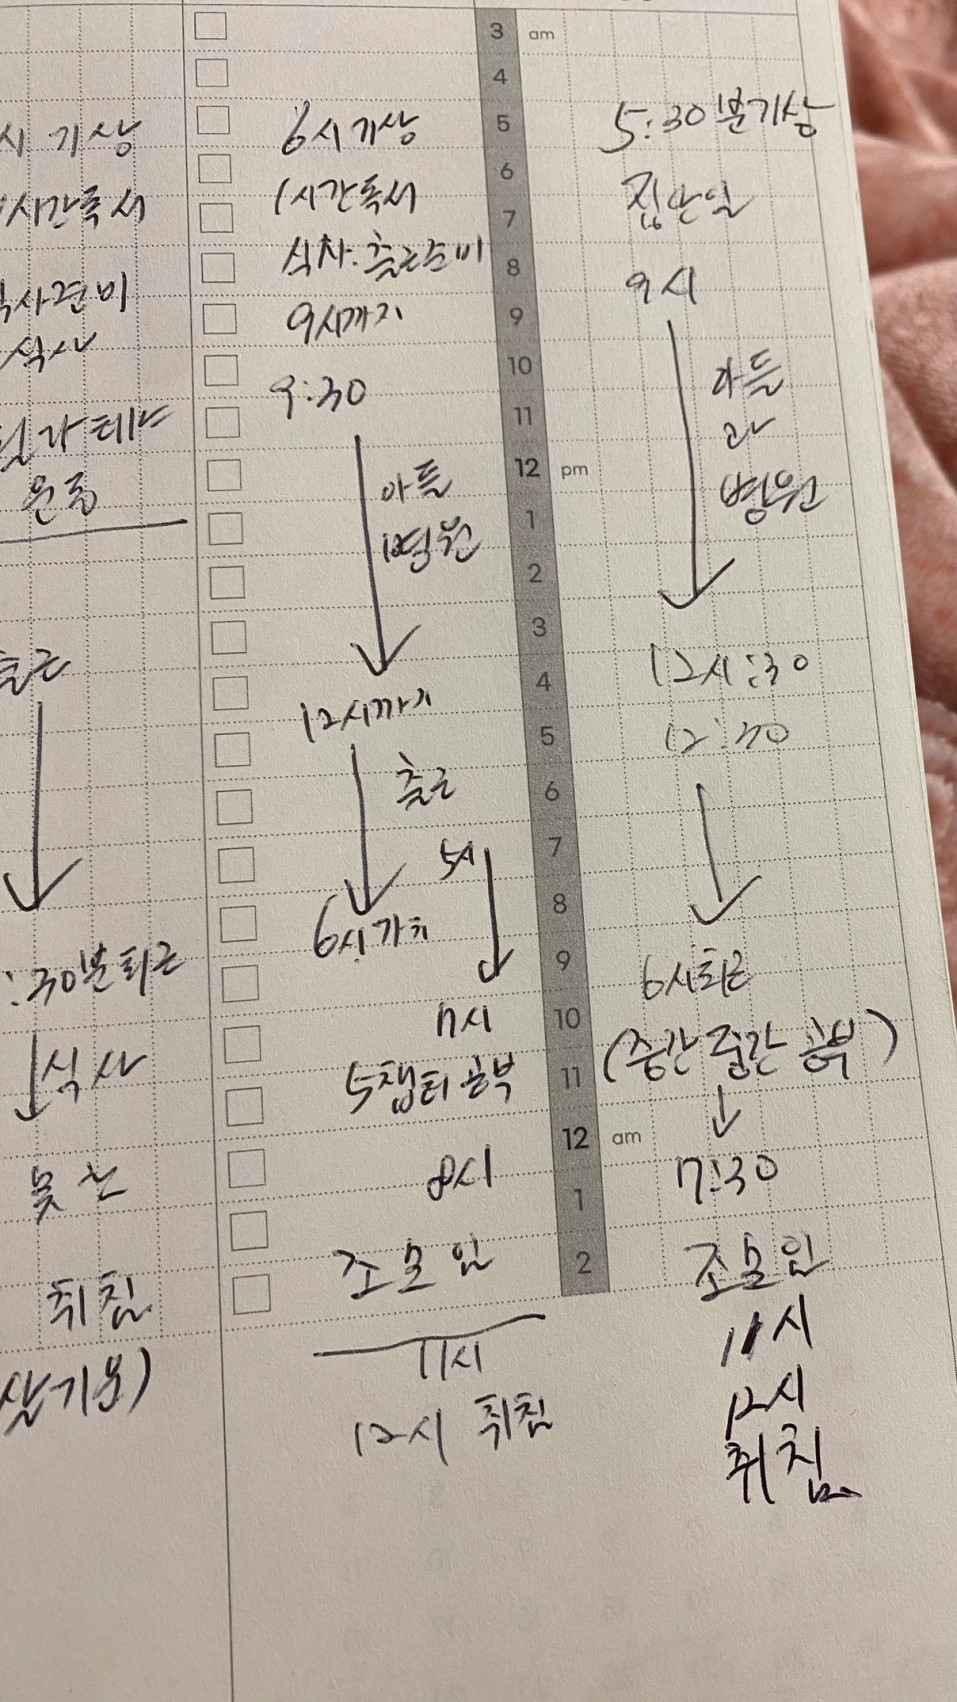 시 기상
1시간독서
식사준비
식사
운동
출근
:30분퇴근
식사
취침
6시기상
1시간독서
식사. 출근준비
9시까지
9:30
아들
병원
12시까지
출근
5시
6시까지
7시
5챕터 공부
8시
조모임
11시
12시 취침
3 am
4
5
6
7
8
9
10
11
12 pm
1
2
3
4
5
6
7
8
9
10
11
12 am
1
2
5:30분기상
집안일
9시
아들
과
병원
12시:30
12:40
6시퇴근
(중간중간 공부)
7:30
조모임
11시
12시
취침